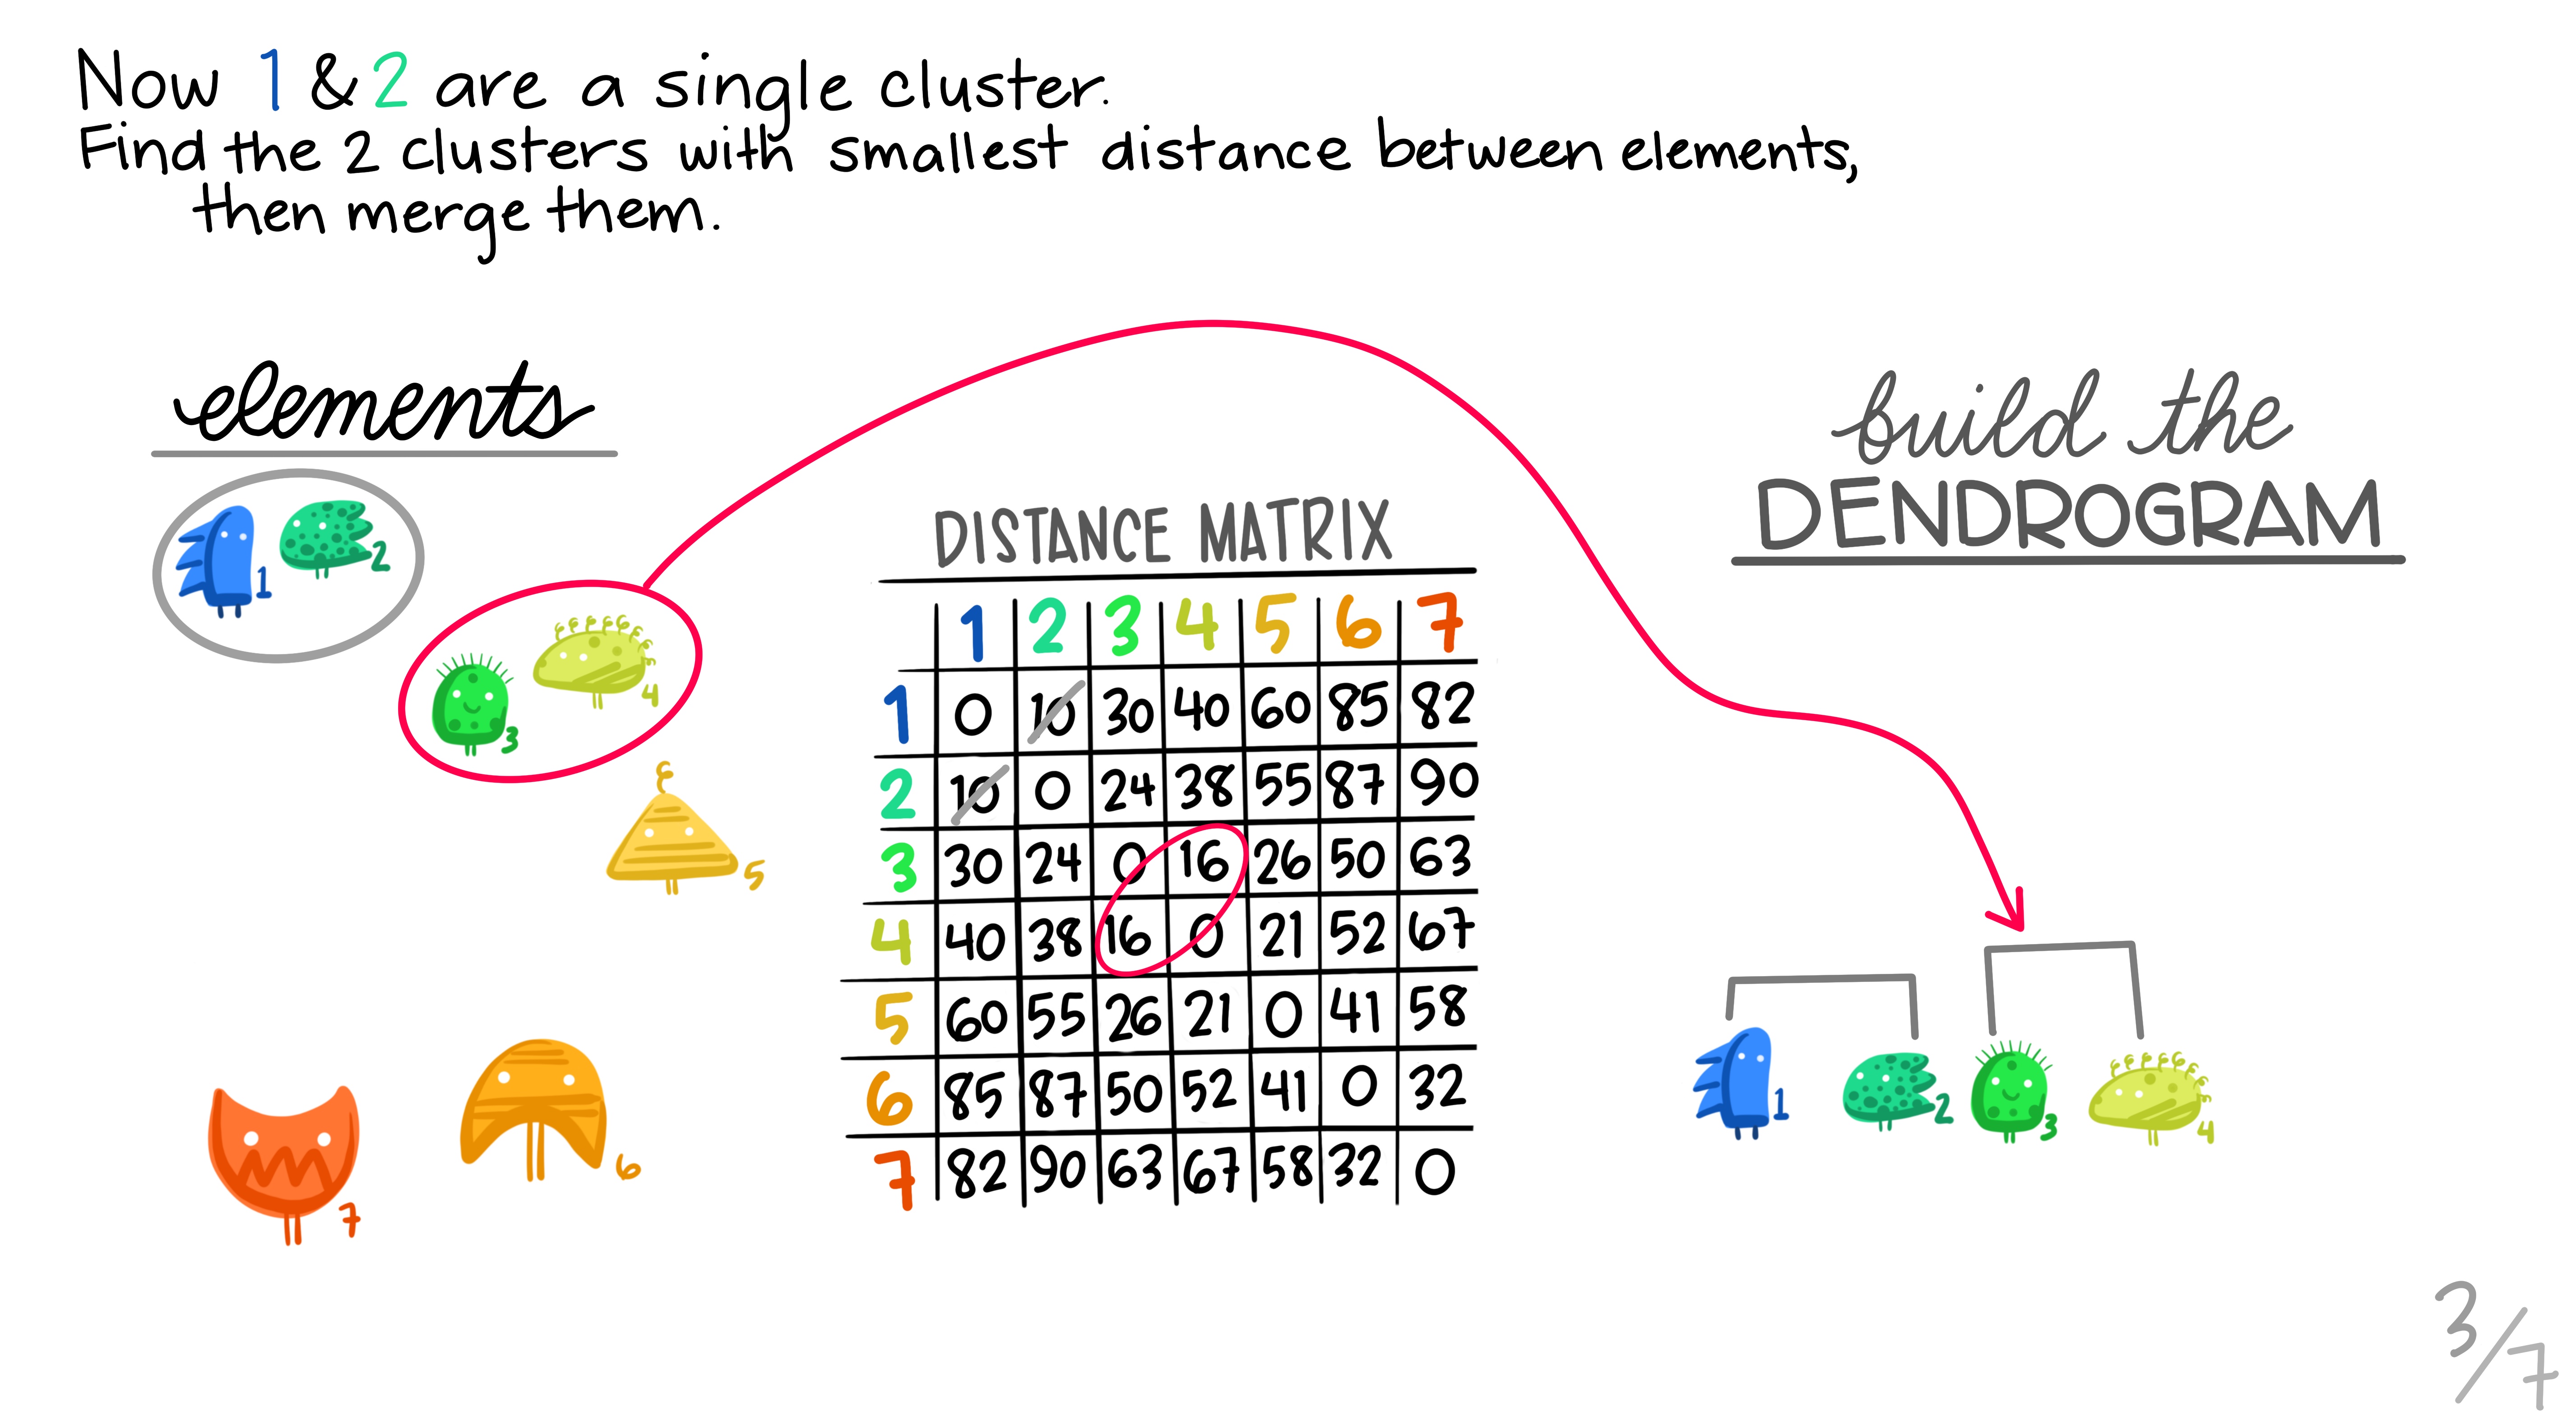 Now 1 & 2 are a single cluster.
Find the 2 clusters with smallest distance between elements,
then merge them.
elements
1
2
3
4
5
6
7
DISTANCE MATRIX
1 2 3 4 5 6 7
1 0 10 30 40 60 85 82
2 10 0 24 38 55 87 90
3 30 24 0 16 26 50 63
4 40 38 16 0 21 52 67
5 60 55 26 21 0 41 58
6 85 87 50 52 41 0 32
7 82 90 63 67 58 32 0
build the
DENDROGRAM
1 2 3 4
3/7